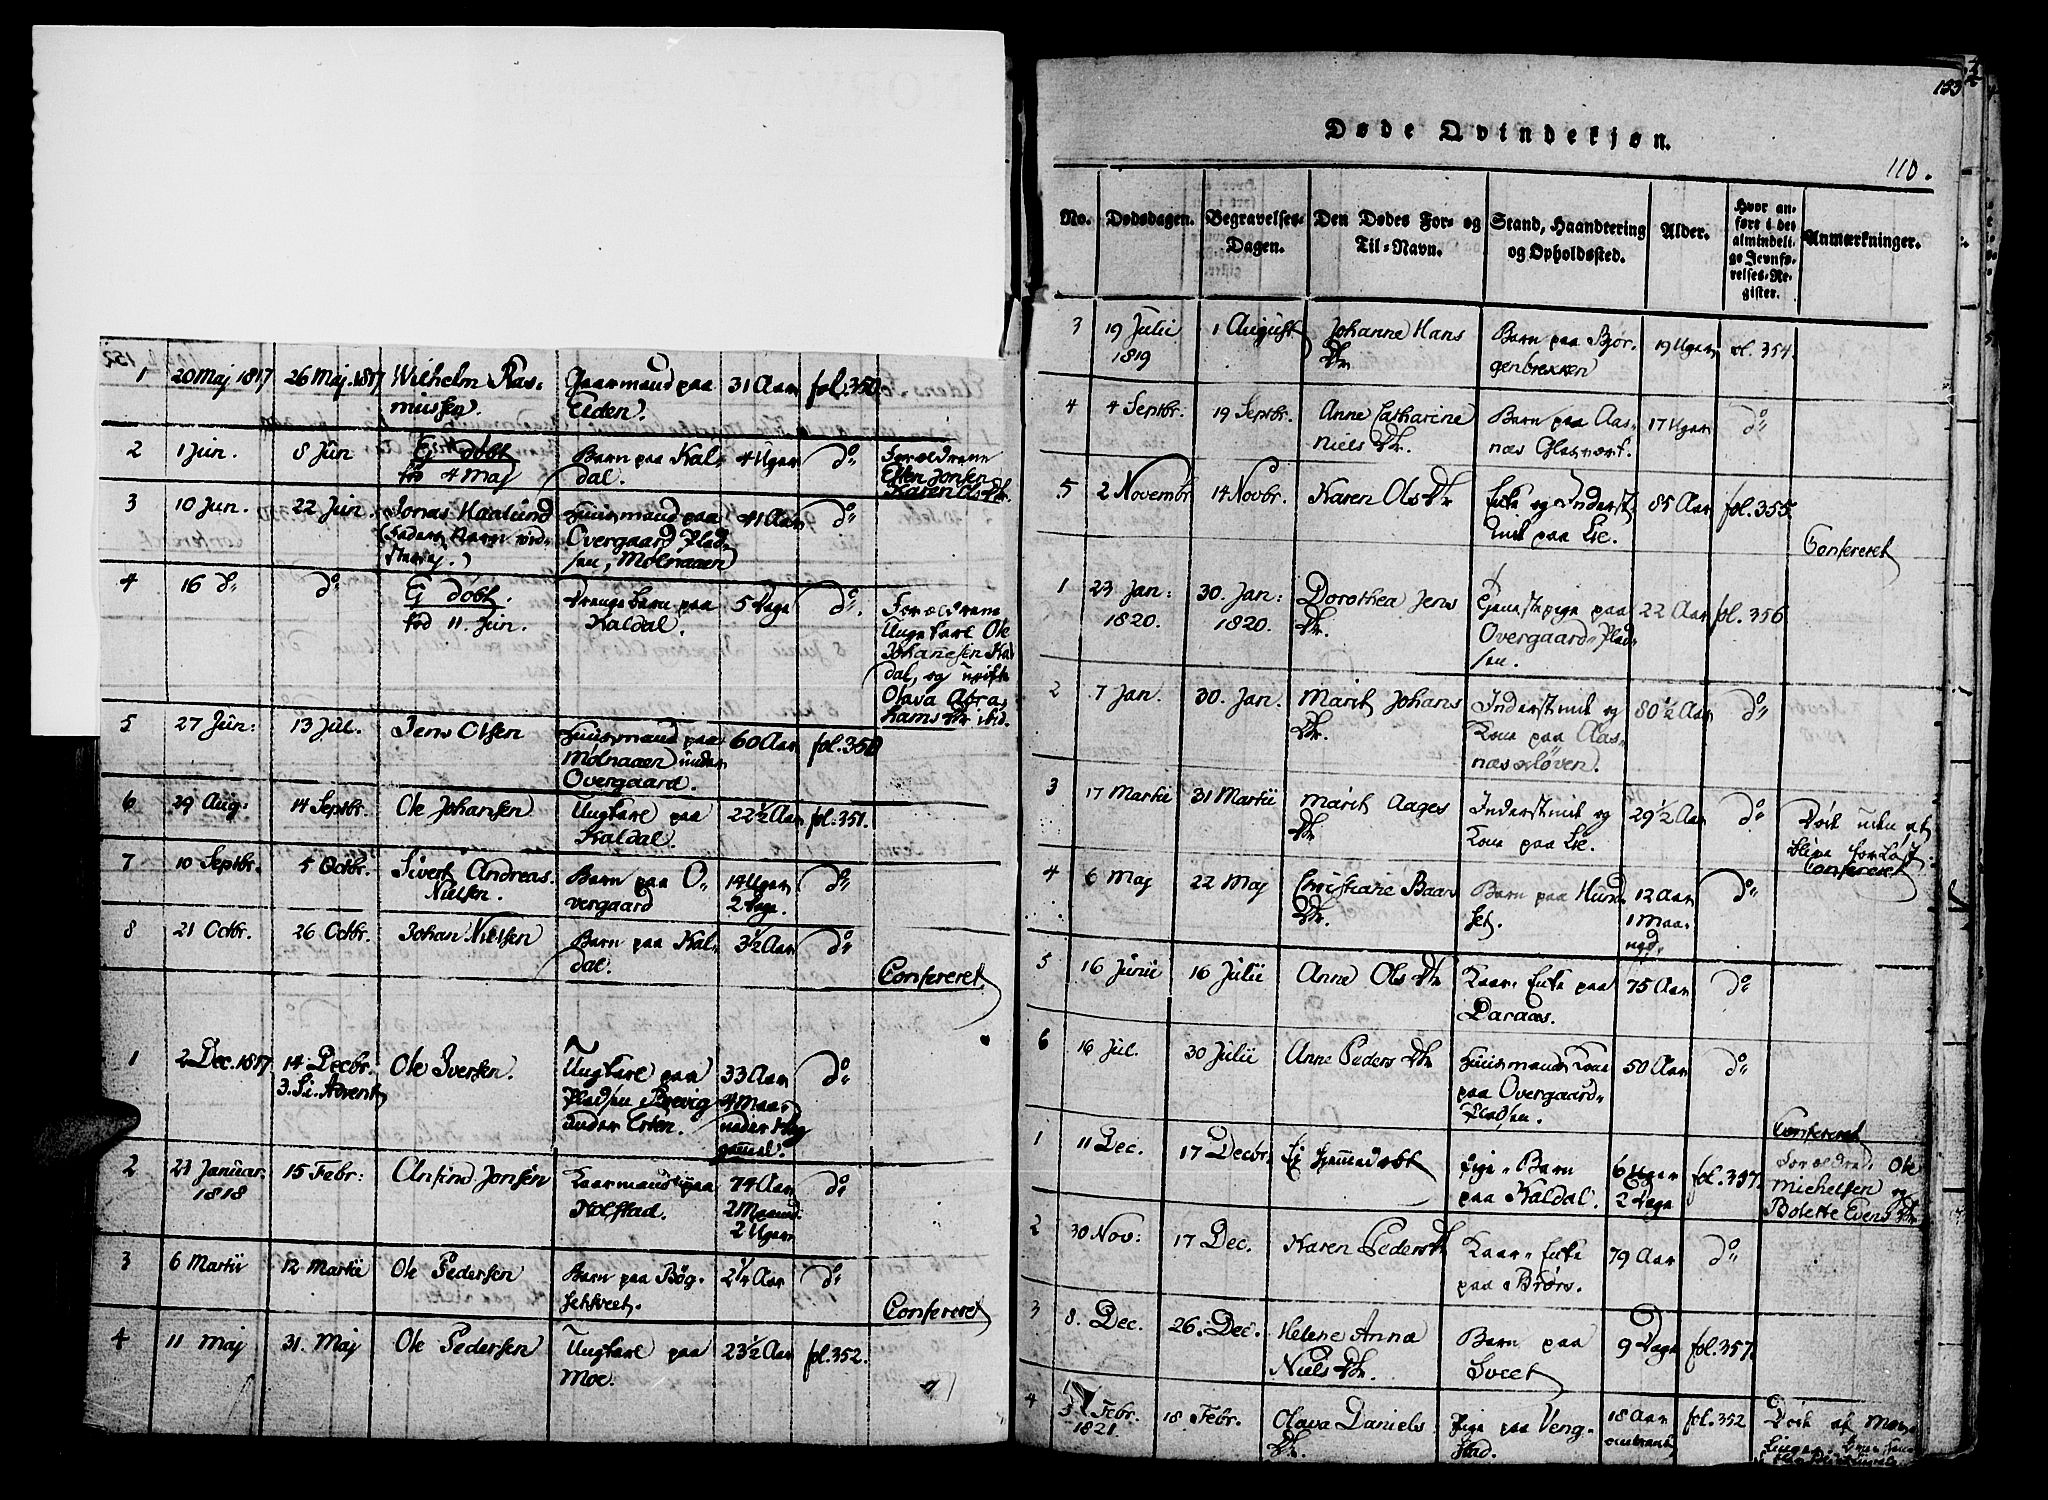 152
1 20 Maj 1817 26 Maj. 1817 Wilhelm Ras- Gaarmand paa 31 Aar fol. 350
mussen. Eiden.
2 1 Jun. 8 Jun Ej døbt Barn paa Kal- 4 Uger do Forældrene
fød 4 Maj dal. Esten Jonsen
Karen Ols Dtr.
3 10 Jun. 22 Jun. Jonas Haalund Huusmand paa 41 Aar do
Overgaard Plad-
sen, Mølnaaen
4 16 do do Ej døbt. Drenge barn paa 5 Dage do. Forældrene
fød 11. Jun. Kaldal. Ungkarl Ole
Johannesen Kal-
dal, og
Olava Abra-
hams Dtr ibid.
5 27 Jun: 13 Jul. Jens Olsen Huusmand paa 60 Aar fol. 350
Mølnaaen under
Overgaard.
6 29 Aug: 14 Septbr. Ole Johansen Ungkarl paa 22½ Aar fol. 351.
Kaldal.
7 10 Septbr. 5 Octbr. Sivert Andreas Barn paa O- 14 Uger do
Nielsen. vergaard 2 Dage.
8 21 Octbr. 26 Octbr. Johan Nielsen Barn paa Kal- 3½ Aar do
dal.
Confereret
1 2 Dec. 1817 14 Decbr. Ole Iversen. Ungkarl paa 33 Aar do
3. S. i. Advent Pladsen Brevig 4 Maa-
under Esten. neder
2 23 Januar. 15 Febr: Arfind Jonsen Kaarmand paa 74 Aar do
1818 Kolstad. 2 Maaned
2 Uger
3 6 Martii 12 Martii Ole Pedersen Barn paa Bøg- 2¼ Aar do
setkveet.
Confereret
4 11 Maj 31. Maj Ole Pedersen Ungkarl paa 23½ Aar fol. 352.
Moe.
153
Døde Qvindekjøn.
110.
No. Dødsdagen. Begravelses- Dagen. Den Dødes For- og Til-Navn. Stand, Haandtering og Opholdssted. Alder. Hvor anført i det almindelige Jevnførelses-Register. Anmærkninger.
3 19 Julii 1 August Johanne Hans Barn paa Bjør- 19 Uger fol. 354.
1819 Dtr. genbrekken
4 4 Septbr. 19 Septbr. Anne Catharine Barn paa Aas- 17 Uger do
Niels Dtr næs Glasværk.
5 2 Novembr 14 Novbr. Karen Ols Dtr Enke og Inderst- 85 Aar fol. 355.
paa Lie.
Confereret
1 23 Jan: 30. Jan: Dorothea Jens Tjenestpige paa 22 Aar fol. 356
1820. 1820. Dtr. Overgaard-Plad-
sen.
2 7 Jan. 30. Jan. Marit Johans Inderst og 80½ Aar do
Dtr. Kone paa Aas-
næskløven.
3 17 Martii 31 Martii Marit Aages Inderst og 29½ Aar do Døde uden at
Dtr. Kone paa Lie. blive forløst.
Confereret
4 6 Maj 22 Maj Christiane Baars Barn paa Hund- 12 Aar do
Dtr. set. 1 Maa-
ned.
5 16 Junii 16 Julii Anne Ols Dtr Kaar-Enke paa 75 Aar do
Daraas.
6 16 Jul. 30 Julii Anne Peders Dtr Huusmands Kone 50 Aar do
paa Overgaard-
Pladsen.
Confereret
1 11 Dec. 17 Decbr. Ej hjemmedøbt Pige-Barn 6 Uger fol. 357. Forældre: Ole
paa Kaldal. 2 Dage Michelsen og
Bolette Evens Dtr
2 30 Nov: 17 Dec. Karen Peders Dtr Kaar-Enke 79 Aar do
paa Brørs.
3 8. Dec. 26. Dec. Helene Anna Barn paa 9 Dage fol. 357.
Niels Dtr. Sveet
4 Febr. 18 Febr. Olava Daniels Pige paa Veng- 18 Aar fol. 352 Døde af
1821. Dtr. stad. omtrent